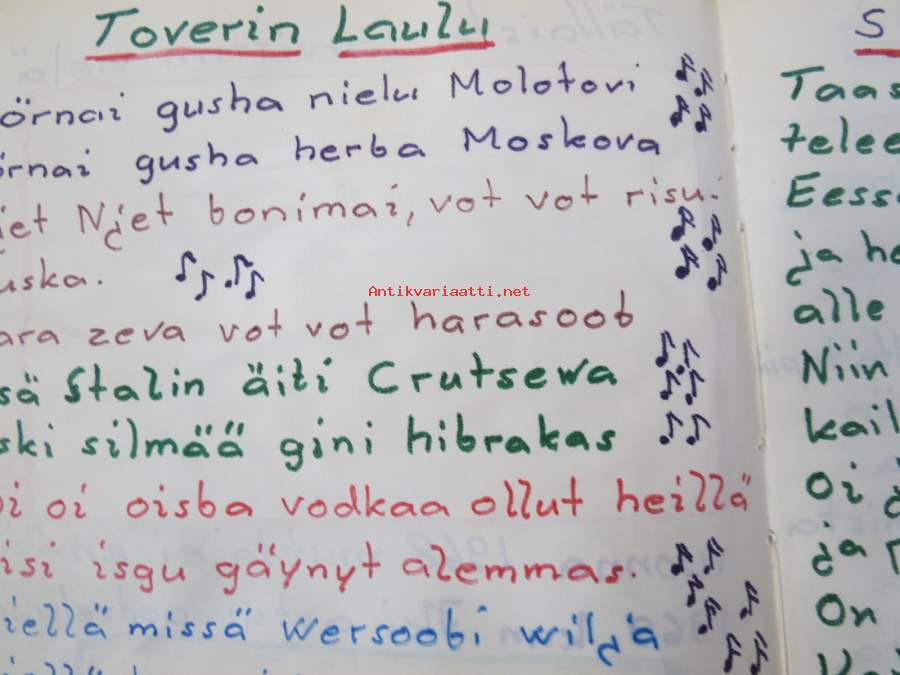 Toverin Laulu
örnai gusha nielu Molotovi
örnai gusha herba Moskova
jet Njet bonimai, vot vot risu.
uska.
Antikvariaatti.net
ara zeva vot vot harasoob
sä Stalin äiti Crutsewa
ski silmää gini hibrakas
oi oi oisba vodkaa ollut heillä
isi isgu gäynyt alemmas.
iellä missä wersoobi wiljä
S
Taas
telee
Eess
ja h
alle
Niin
kail
Oi j
ja
On